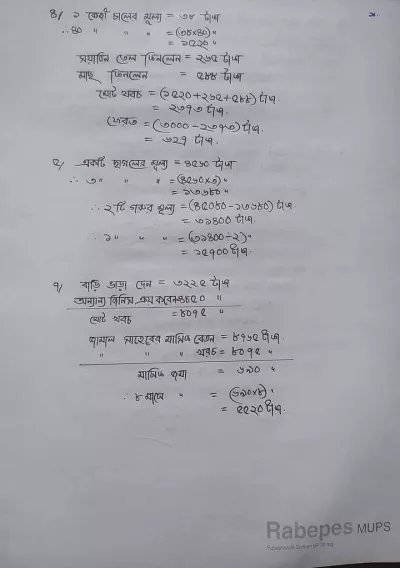 ৪) ১ কেজি চালের মূল্য = ৩৮ টাকা
∴ ৪০ " " " = (৩৮×৪০) "
= ১৫২০ "
সয়াবিন তেল কিনলেন = ২৬৫ টাকা
মাছ কিনলেন = ৫৮৮ টাকা
মোট খরচ = (১৫২০+২৬৫+৫৮৮) টাকা
= ২৩৭৩ টাকা
ফেরত = (৩০০০-২৩৭৩) টাকা
= ৬২৭ টাকা.
৫) একটি ছাগলের মূল্য = ৪৫৬০ টাকা
∴ ৩ " " " = (৪৫৬০×৩) "
= ১৩৬৮০ "
∴ ২টি গরুর মূল্য = (৪৫০৮০-১৩৬৮০) টাকা
= ৩১৪০০ টাকা
∴ ১ " " " = (৩১৪০০÷২) "
= ১৫৭০০ টাকা.
৭) বাড়ি ভাড়া দেন = ৩২২৫ টাকা
অন্যান্য জিনিস ক্রয় করেন = ৪৮৫০ "
মোট খরচ = ৮০৭৫ "
সাহেবের মাসিক বেতন = ৮৭৬৫ টাকা
" " " খরচ = ৮০৭৫ "
মাসিক জমা = ৬৯০ "
∴ ৮ মাসে " = (৬৯০×৮) "
= ৫৫২০ টাকা.
Rabepes MUPS